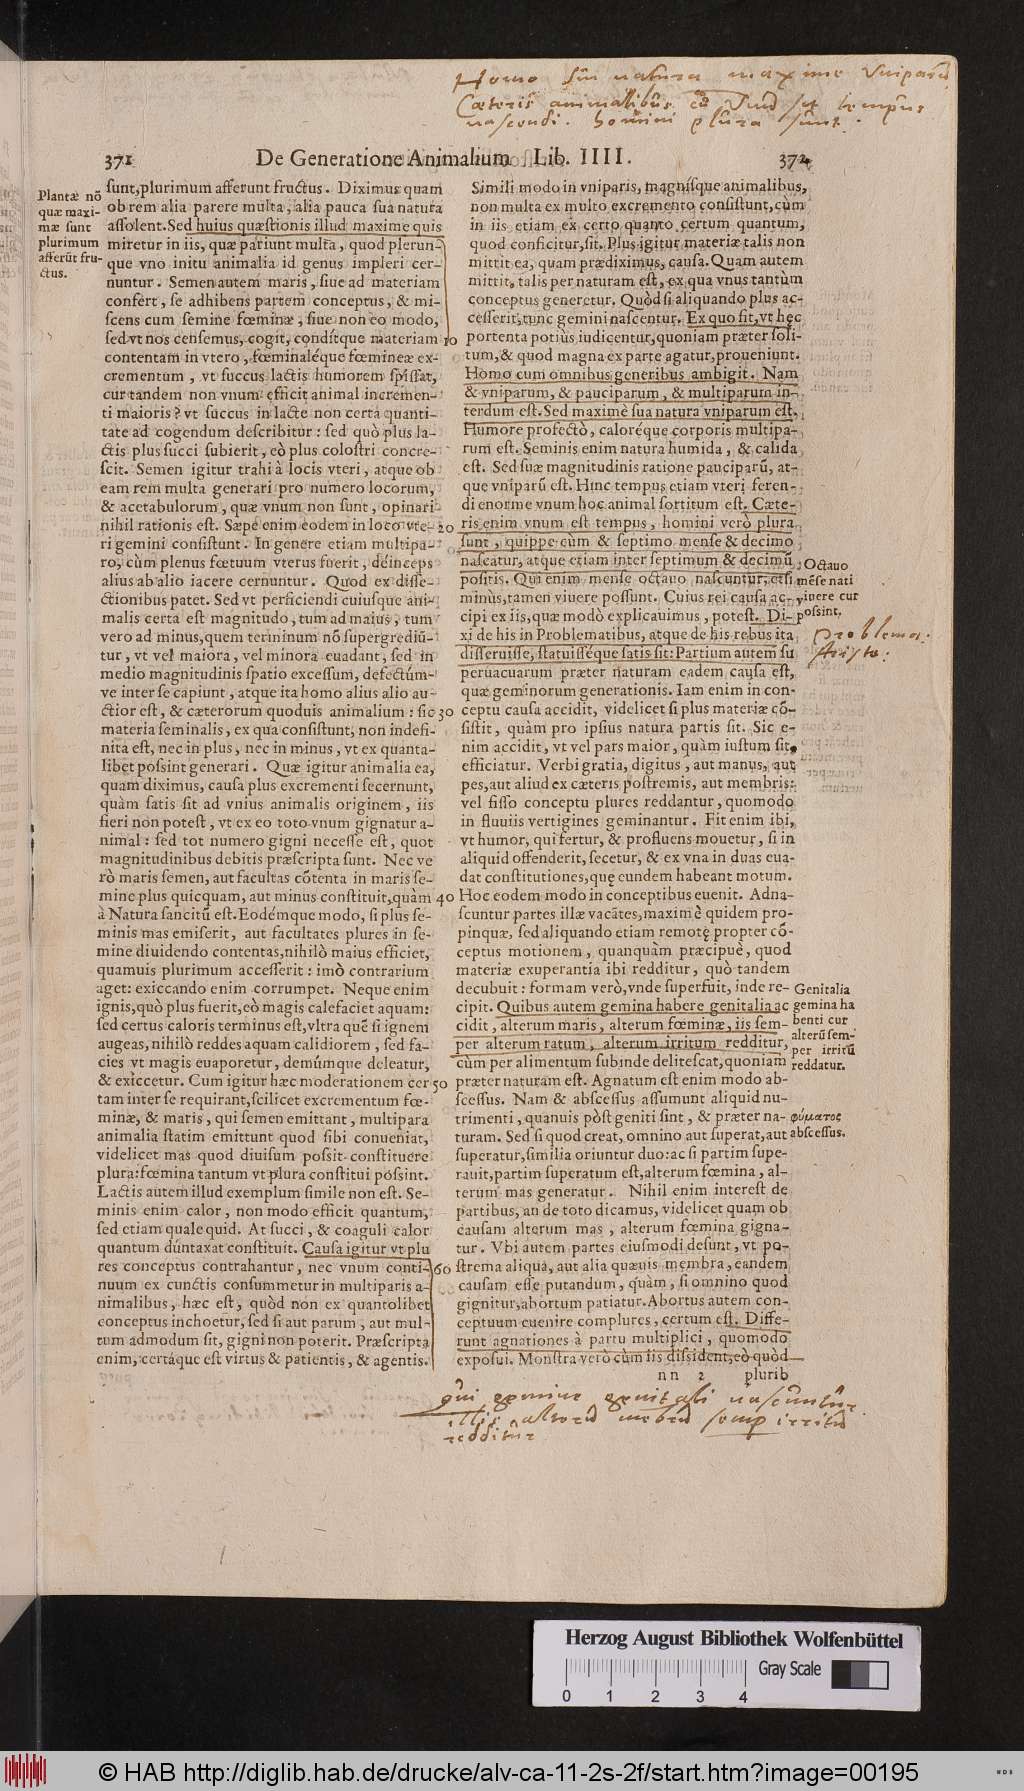 Homo sui natura maxime Uniparū
Cæteris animalibus cū Unū sit tempus
nascendi. homini plura sunt.
371 De Generatione Animalium Lib. IIII. 372
Plantæ nō
quæ maxi-
mæ sunt
plurimum
afferūt fru-
ctus.
sunt, plurimum afferunt fructus. Diximus quam
ob rem alia parere multa, alia pauca sua natura
assolent. Sed huius quæstionis illud maxime quis
miretur in iis, quæ pariunt multa, quod plerun-
que vno initu animalia id genus impleri cer-
nuntur. Semen autem maris, siue ad materiam
confert, se adhibens partem conceptus, & mi-
scens cum semine fœminæ, siue non eo modo,
sed vt nos censemus, cogit, condítque materiam 10
contentam in vtero, fœminaléque fœmineæ ex-
crementum, vt succus lactis humorem spissat,
cur tandem non vnum efficit animal incremen-
ti maioris? vt succus in lacte non certa quanti-
tate ad cogendum describitur: sed quò plus la-
ctis plus succi subierit, eò plus colostri concre-
scit. Semen igitur trahi à locis vteri, atque ob
eam rem multa generari pro numero locorum,
& acetabulorum, quæ vnum non sunt, opinari
nihil rationis est. Sæpe enim eodem in loco vte- 20
ri gemini consistunt. In genere etiam multipa-
ro, cùm plenus fœtuum vterus fuerit, déinceps
alius ab alio iacere cernuntur. Quod ex disse-
ctionibus patet. Sed vt perficiendi cuiusque ani-
malis certa est magnitudo, tum ad maius, tum
vero ad minus, quem terminum nō supergrediū-
tur, vt vel maiora, vel minora euadant, sed in
medio magnitudinis spatio excessum, defectúm-
ve inter se capiunt, atque ita homo alius alio au-
ctior est, & cæterorum quoduis animalium: sic 30
materia seminalis, ex qua consistunt, non indefi-
nita est, nec in plus, nec in minus, vt ex quanta-
libet possint generari. Quæ igitur animalia ea,
quam diximus, causa plus excrementi secernunt,
quàm satis sit ad vnius animalis originem, iis
fieri non potest, vt ex eo toto vnum gignatur a-
nimal: sed tot numero gigni necesse est, quot
magnitudinibus debitis præscripta sunt. Nec ve
rò maris semen, aut facultas cōtenta in maris se-
mine plus quicquam, aut minus constituit, quàm 40
à Natura sancitū est. Eodémque modo, si plus se-
minis mas emiserit, aut facultates plures in se-
mine diuidendo contentas, nihilò maius efficiet,
quamuis plurimum accesserit: imò contrarium
aget: exiccando enim corrumpet. Neque enim
ignis, quò plus fuerit, eò magis calefaciet aquam:
sed certus caloris terminus est, vltra quē si ignem
augeas, nihilò reddes aquam calidiorem, sed fa-
cies vt magis euaporetur, demúmque deleatur,
& exiccetur. Cum igitur hæc moderationem cer 50
tam inter se requirant, scilicet excrementum fœ-
minæ, & maris, qui semen emittant, multipara
animalia statim emittunt quod sibi conueniat,
videlicet mas quod diuisum possit constituere
plura: fœmina tantum vt plura constitui possint.
Lactis autem illud exemplum simile non est. Se-
minis enim calor, non modo efficit quantum,
sed etiam quale quid. At succi, & coaguli calor
quantum dúntaxat constituit. Causa igitur vt plu
res conceptus contrahantur, nec vnum conti- 60
nuum ex cunctis consummetur in multiparis a-
nimalibus, hæc est, quòd non ex quantolibet
conceptus inchoetur, sed si aut parum, aut mul-
tum admodum sit, gigni non poterit. Præscripta
enim, certáque est virtus & patientis, & agentis.
Simili modo in vniparis, magnísque animalibus,
non multa ex multo excremento consistunt, cùm
in iis etiam ex certo quanto certum quantum,
quod conficitur, sit. Plus igitur materiæ talis non
mittit ea, quam prædiximus, causa. Quam autem
mittit, talis per naturam est, ex qua vnus tantùm
conceptus generetur. Quòd si aliquando plus ac-
cesserit, tunc gemini nascentur. Ex quo fit, vt hęc
portenta potiùs iudicentur, quoniam præter soli-
tum, & quod magna ex parte agatur, proueniunt.
Homo cum omnibus generibus ambigit. Nam
& vniparum, & pauciparum, & multiparum in-
terdum est. Sed maximè sua natura vniparum est.
Humore profectò, caloréque corporis multipa-
rum est. Seminis enim natura humida, & calida
est. Sed suæ magnitudinis ratione pauciparū, at-
que vniparū est. Hinc tempus etiam vteri feren-
di enorme vnum hoc animal sortitum est. Cæte-
ris enim vnum est tempus, homini verò plura
sunt, quippe cùm & septimo mense & decimo
nascatur, atque etiam inter septimum & decimū
positis. Qui enim mense octauo nascuntur, etsi
minùs, tamen viuere possunt. Cuius rei causa ac-
cipi ex iis, quæ modò explicauimus, potest. Di-
xi de his in Problematibus, atque de his rebus ita
disseruisse, statuisséque satis sit: Partium autem su
peruacuarum præter naturam eadem causa est,
quæ geminorum generationis. Iam enim in con-
ceptu causa accidit, videlicet si plus materiæ cō-
sistit, quàm pro ipsius natura partis sit. Sic e-
nim accidit, vt vel pars maior, quàm iustum sit,
efficiatur. Verbi gratia, digitus, aut manus, aut
pes, aut aliud ex cæteris postremis, aut membris:
vel fisso conceptu plures reddantur, quomodo
in fluuiis vertigines geminantur. Fit enim ibi,
vt humor, qui fertur, & profluens mouetur, si in
aliquid offenderit, secetur, & ex vna in duas eua-
dat constitutiones, quę eundem habeant motum.
Hoc eodem modo in conceptibus euenit. Adna-
scuntur partes illæ vacātes, maximè quidem pro-
pinquæ, sed aliquando etiam remotę propter cō-
ceptus motionem, quanquàm præcipuè, quod
materiæ exuperantia ibi redditur, quò tandem
decubuit: formam verò, vnde superfuit, inde re-
cipit. Quibus autem gemina habere genitalia ac
cidit, alterum maris, alterum fœminæ, iis sem-
per alterum ratum, alterum irritum redditur,
cùm per alimentum subinde delitescat, quoniam
præter naturam est. Agnatum est enim modo ab-
scessus. Nam & abscessus assumunt aliquid nu-
trimenti, quanuis pòst geniti sint, & præter na-
turam. Sed si quod creat, omnino aut superat, aut
superatur, similia oriuntur duo: ac si partim supe-
rauit, partim superatum est, alterum fœmina, al-
terum mas generatur. Nihil enim interest de
partibus, an de toto dicamus, videlicet quam ob
causam alterum mas, alterum fœmina gigna-
tur. Vbi autem partes eiusmodi desunt, vt po-
strema aliqua, aut alia quæuis membra, eandem
causam esse putandum, quàm, si omnino quod
gignitur, abortum patiatur. Abortus autem con-
ceptuum euenire complures, certum est. Diffe-
runt agnationes à partu multiplici, quomodo
exposui. Monstra verò cùm iis dissident, eò quòd
nn 2 plurib
Octauo
mēse nati
viuere cur
possint.
Problema.
Aristo:
Genitalia
gemina ha
benti cur
alterū sem-
per irritū
reddatur.
φύματος
abscessus.
Qui gemine genitali nascuntur
illis alterū mēbrū semp irritū
redditur
Herzog August Bibliothek Wolfenbüttel
Gray Scale
0 1 2 3 4
© HAB http://diglib.hab.de/drucke/alv-ca-11-2s-2f/start.htm?image=00195